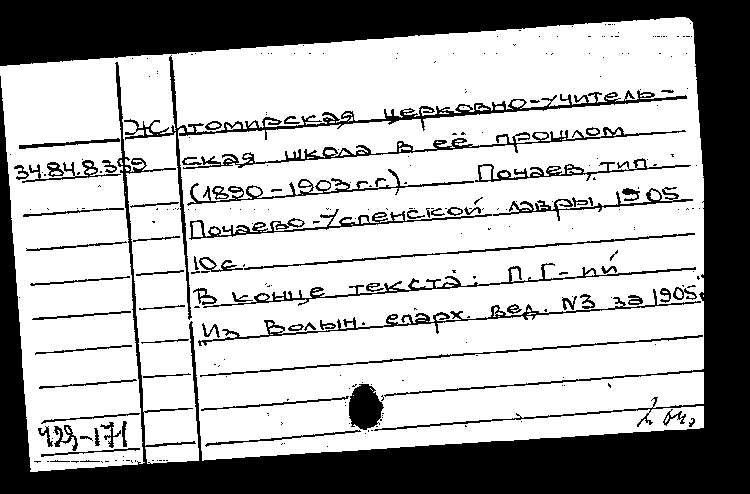 Житомирская церковно-учитель-
34.84.8.359 ская школа в её прошлом
(1890-1903 г.г.). Почаев, тип.
Почаево-Успенской лавры, 1905
10 с.
В конце текста: П. Г-ий
"Из Волын. епарх. вед. N3 за 1905"
429-171